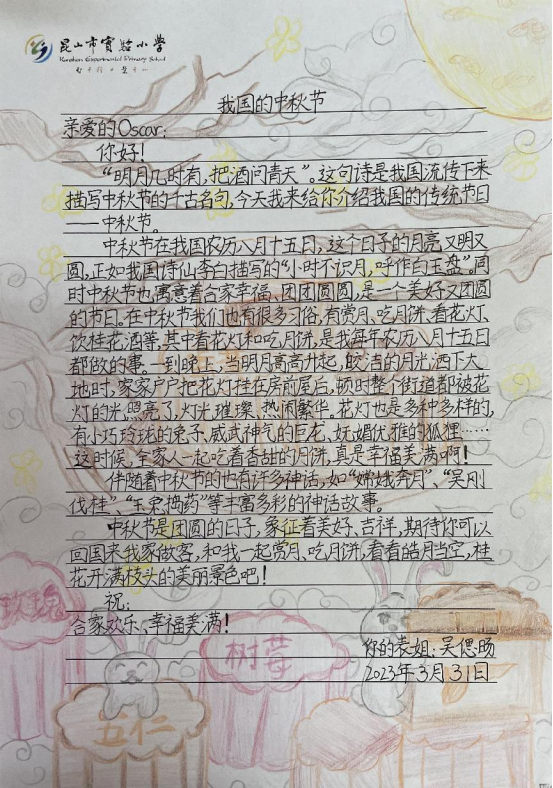 昆山市实验小学
Kunshan Experimental Primary School
我国的中秋节
亲爱的Oscar:
你好!
“明月几时有,把酒问青天”。这句诗是我国流传下来
描写中秋节的千古名句,今天我来给你介绍我国的传统节日
——中秋节。
中秋节在我国农历八月十五日,这个日子的月亮又明又
圆,正如我国诗仙李白描写的“小时不识月,呼作白玉盘”。同
时中秋节也寓意着合家幸福、团团圆圆,是一个美好又团圆
的节日。在中秋节我们也有很多习俗,有赏月、吃月饼、看花灯、
饮桂花酒等,其中看花灯和吃月饼,是我每年农历八月十五日
都做的事。一到晚上,当明月高高升起,皎洁的月光洒下大
地时,家家户户把花灯挂在房前屋后,顿时整个街道都被花
灯的光照亮了,灯光璀璨、热闹繁华。花灯也是多种多样的,
有小巧玲珑的兔子、威武神气的巨龙、妩媚优雅的狐狸……
这时候,全家人一起吃着香甜的月饼,真是幸福美满啊!
伴随着中秋节的也有许多神话,如“嫦娥奔月”、“吴刚
伐桂”、“玉兔捣药”等丰富多彩的神话故事。
中秋节是团圆的日子,象征着美好、吉祥,期待你可以
回国来我家做客,和我一起赏月、吃月饼,看看皓月当空,桂
花开满枝头的美丽景色吧!
祝:
合家欢乐、幸福美满!
你的表姐:吴偲旸
2023年3月31日
玫瑰
树莓
五仁